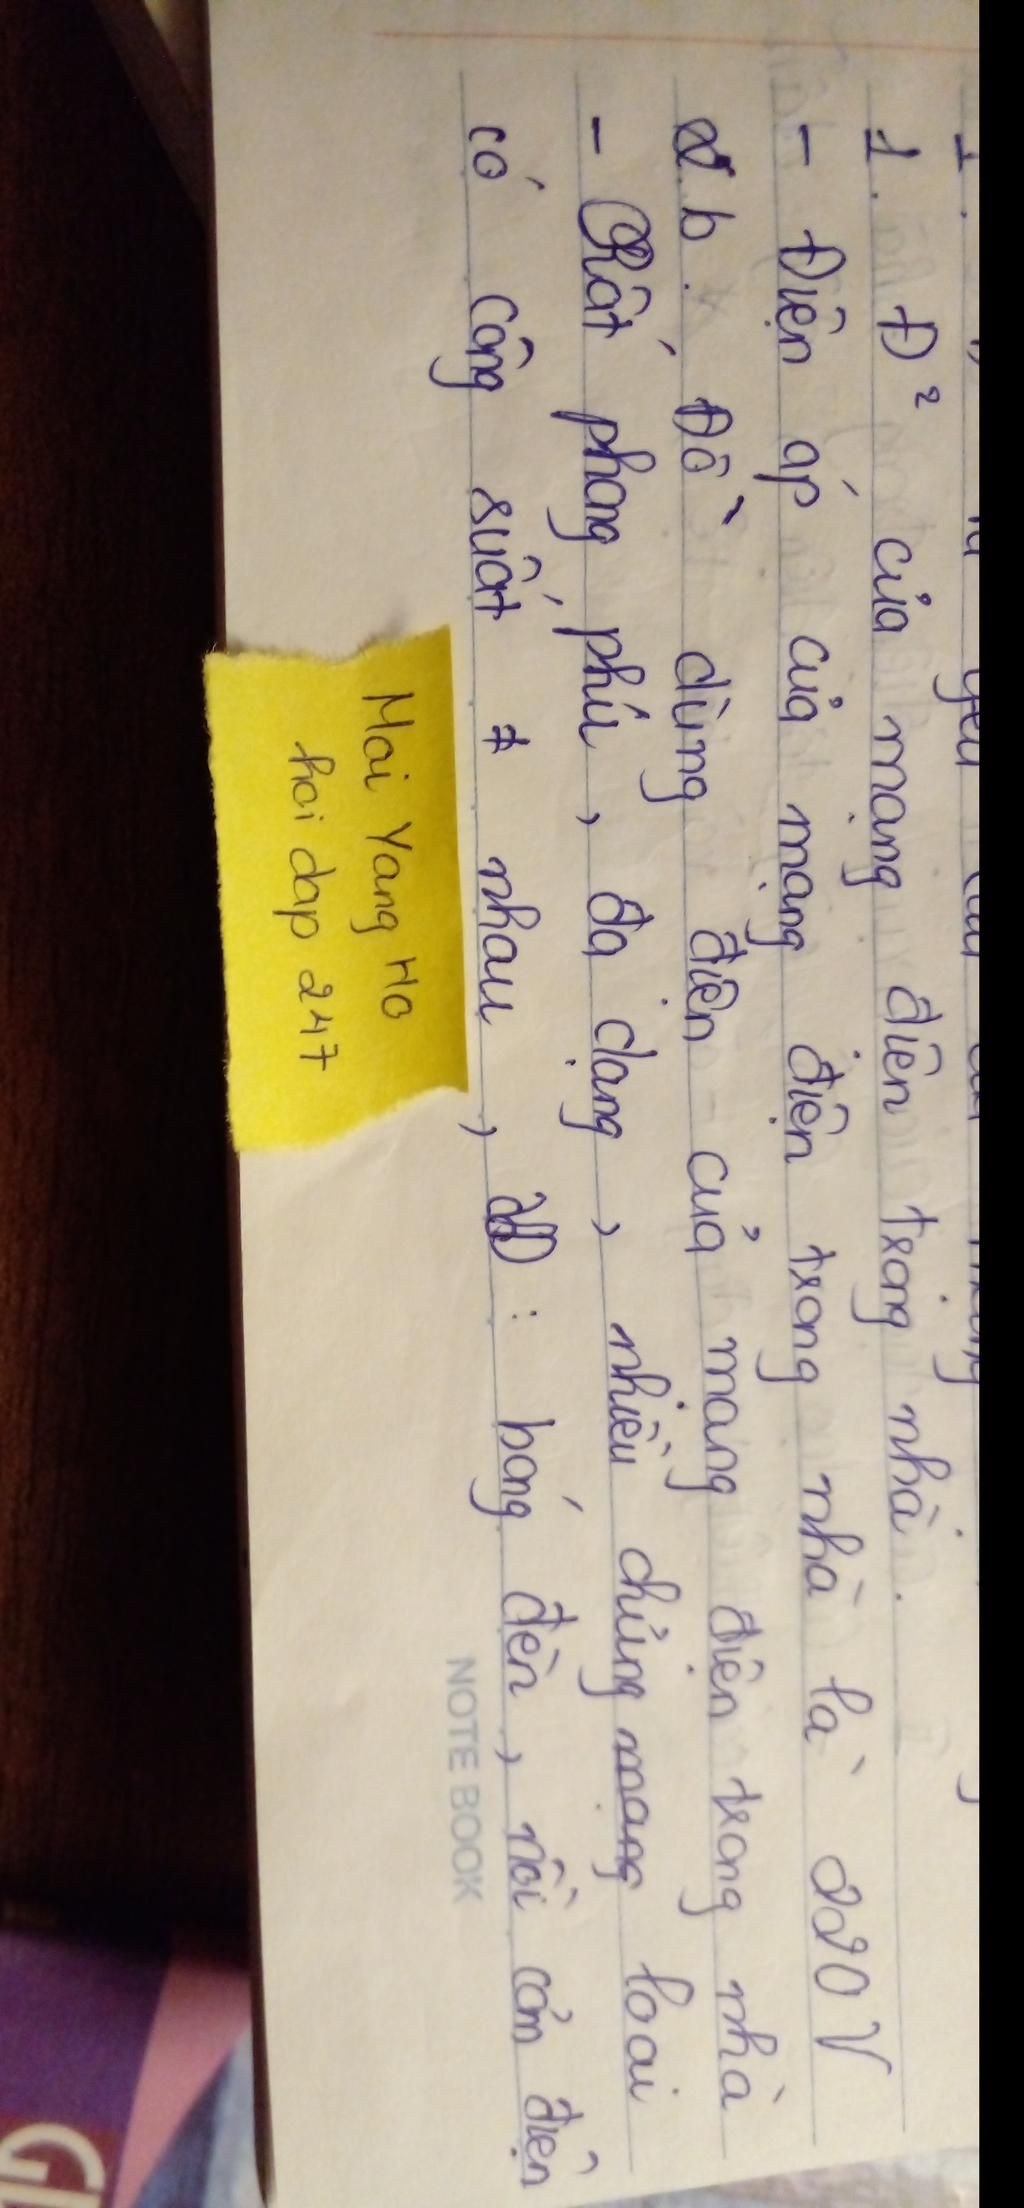 1. Đ² của mạng điện trong nhà.
- Điện áp của mạng điện trong nhà là 220V
b. Đồ dùng điện của mạng điện trong nhà
- Rất phong phú, đa dạng, nhiều chủng mạng loại
có công suất ≠ nhau, : bóng đèn, nồi cơm điện
Mai Vang Ho
hoi dap 247
NOTE BOOK